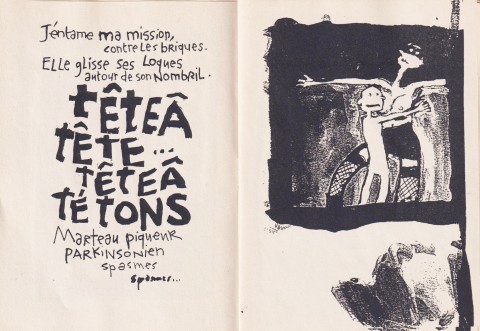 J'éntame ma mission,
contre les briques.
Elle glisse ses Loques
autour de son Nombril.
TÊTEÂ
TÊTE...
TÊTEÂ
TÉTONS
Marteau piqueur
PARKINSONIEN
spasmes
spasmes...